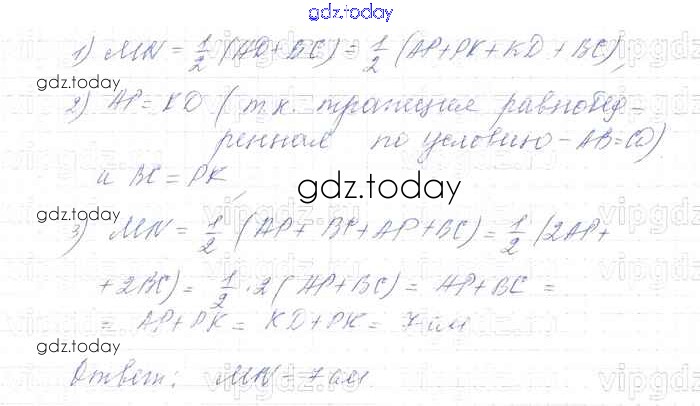 gdz.today
1) MN = 1/2 (AD + BC) = 1/2 (AP + PK + KD + BC),
gdz.today
2) AP = KD (т.к. трапеция равнобед-
ренная по условию - AB = CD)
и BC = PK,
gdz.today
3) MN = 1/2 (AP + BC + AP + BC) = 1/2 (2AP +
+ 2BC) = 1/2 · 2 (AP + BC) = AP + BC =
= AP + PK = KD + PK = 7 см
gdz.today
Ответ: MN = 7 см
gdz.today